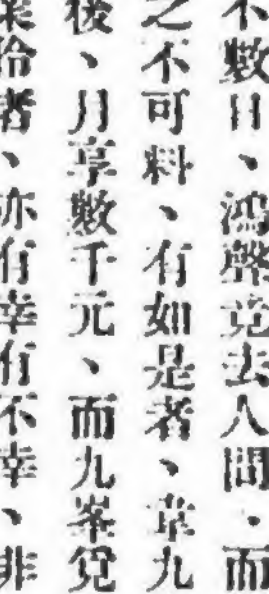 不數日、鴻聲竟去人間、而
之不可料、有如是者、韋九
後、月享數千元、而九峯覓
業伶者、亦有幸有不幸、非